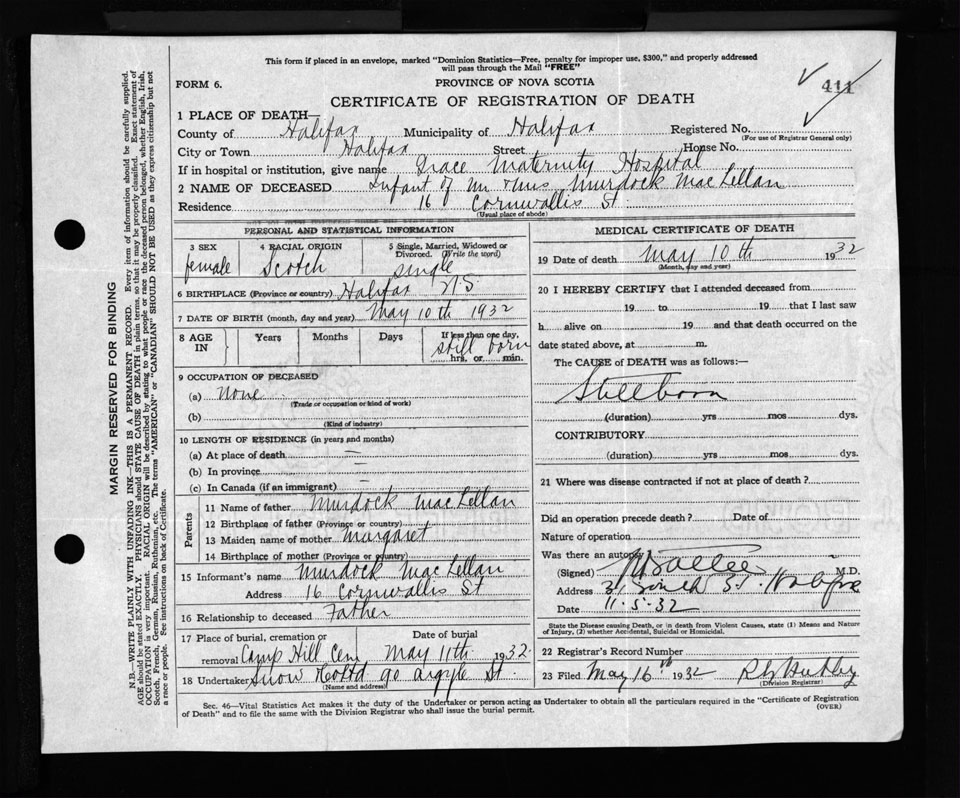 This form if placed in an envelope, marked "Dominion Statistics—Free, penalty for improper use, $300," and properly addressed
will pass through the Mail "FREE"
FORM 6.
PROVINCE OF NOVA SCOTIA
411
CERTIFICATE OF REGISTRATION OF DEATH
1 PLACE OF DEATH—
County of Halifax Municipality of Halifax Registered No.
(For use of Registrar General only)
City or Town Halifax Street House No.
If in hospital or institution, give name Grace Maternity Hospital
2 NAME OF DECEASED Infant of Mr & Mrs Murdock MacLellan
Residence 16 Cornwallis St.
(Usual place of abode)
PERSONAL AND STATISTICAL INFORMATION
3 SEX 4 RACIAL ORIGIN 5 Single, Married, Widowed or
Divorced. (Write the word)
female Scotch single
6 BIRTHPLACE (Province or country) Halifax N.S.
7 DATE OF BIRTH (month, day and year) May 10th 1932
8 AGE IN Years Months Days If less than one day,
still born
hrs. or min.
9 OCCUPATION OF DECEASED
(a) None
(Trade or occupation or kind of work)
(b)
(Kind of industry)
10 LENGTH OF RESIDENCE (in years and months)
(a) At place of death —
(b) In province —
(c) In Canada (if an immigrant) —
Parents
11 Name of father Murdock MacLellan
12 Birthplace of father (Province or country)
13 Maiden name of mother Margaret
14 Birthplace of mother (Province or country)
15 Informant's name Murdock MacLellan
Address 16 Cornwallis St
16 Relationship to deceased Father
17 Place of burial, cremation or Date of burial
removal Camp Hill Cem May 11th 1932.
18 Undertaker Snow & Co Ltd 90 Argyle St.
(Name and address)
MEDICAL CERTIFICATE OF DEATH
19 Date of death May 10th 1932
(Month, day and year)
20 I HEREBY CERTIFY that I attended deceased from
19 to 19 that I last saw
h alive on 19 and that death occurred on the
date stated above, at m.
The CAUSE of DEATH was as follows:—
Stillborn
(duration) yrs mos dys.
CONTRIBUTORY
(duration) yrs mos dys.
21 Where was disease contracted if not at place of death?
Did an operation precede death? Date of
Nature of operation
Was there an autopsy
(Signed) M.D.
Address St Halifax
Date 11.5.32
State the Disease causing Death, or in death from Violent Causes, state (1) Means and Nature
of Injury, (2) whether Accidental, Suicidal or Homicidal.
22 Registrar's Record Number
23 Filed May 16th 1932
(Division Registrar)
Sec. 46—Vital Statistics Act makes it the duty of the Undertaker or person acting as Undertaker to obtain all the particulars required in the "Certificate of Registration
of Death" and to file the same with the Division Registrar who shall issue the burial permit. (OVER)
MARGIN RESERVED FOR BINDING
N.B.—WRITE PLAINLY WITH UNFADING INK—THIS IS A PERMANENT RECORD. Every item of information should be carefully supplied.
AGE should be stated EXACTLY. PHYSICIANS should STATE CAUSE OF DEATH in plain terms, so that it may be properly classified. Exact statement of
OCCUPATION is very important. RACIAL ORIGIN will be described by stating to what people or race the deceased person belonged, whether English, Irish,
Scotch, French, German, Russian, Ruthenian, etc. The terms "AMERICAN" or "CANADIAN" SHOULD NOT BE USED as they express citizenship but not
a race or people. See instructions on back of Certificate.